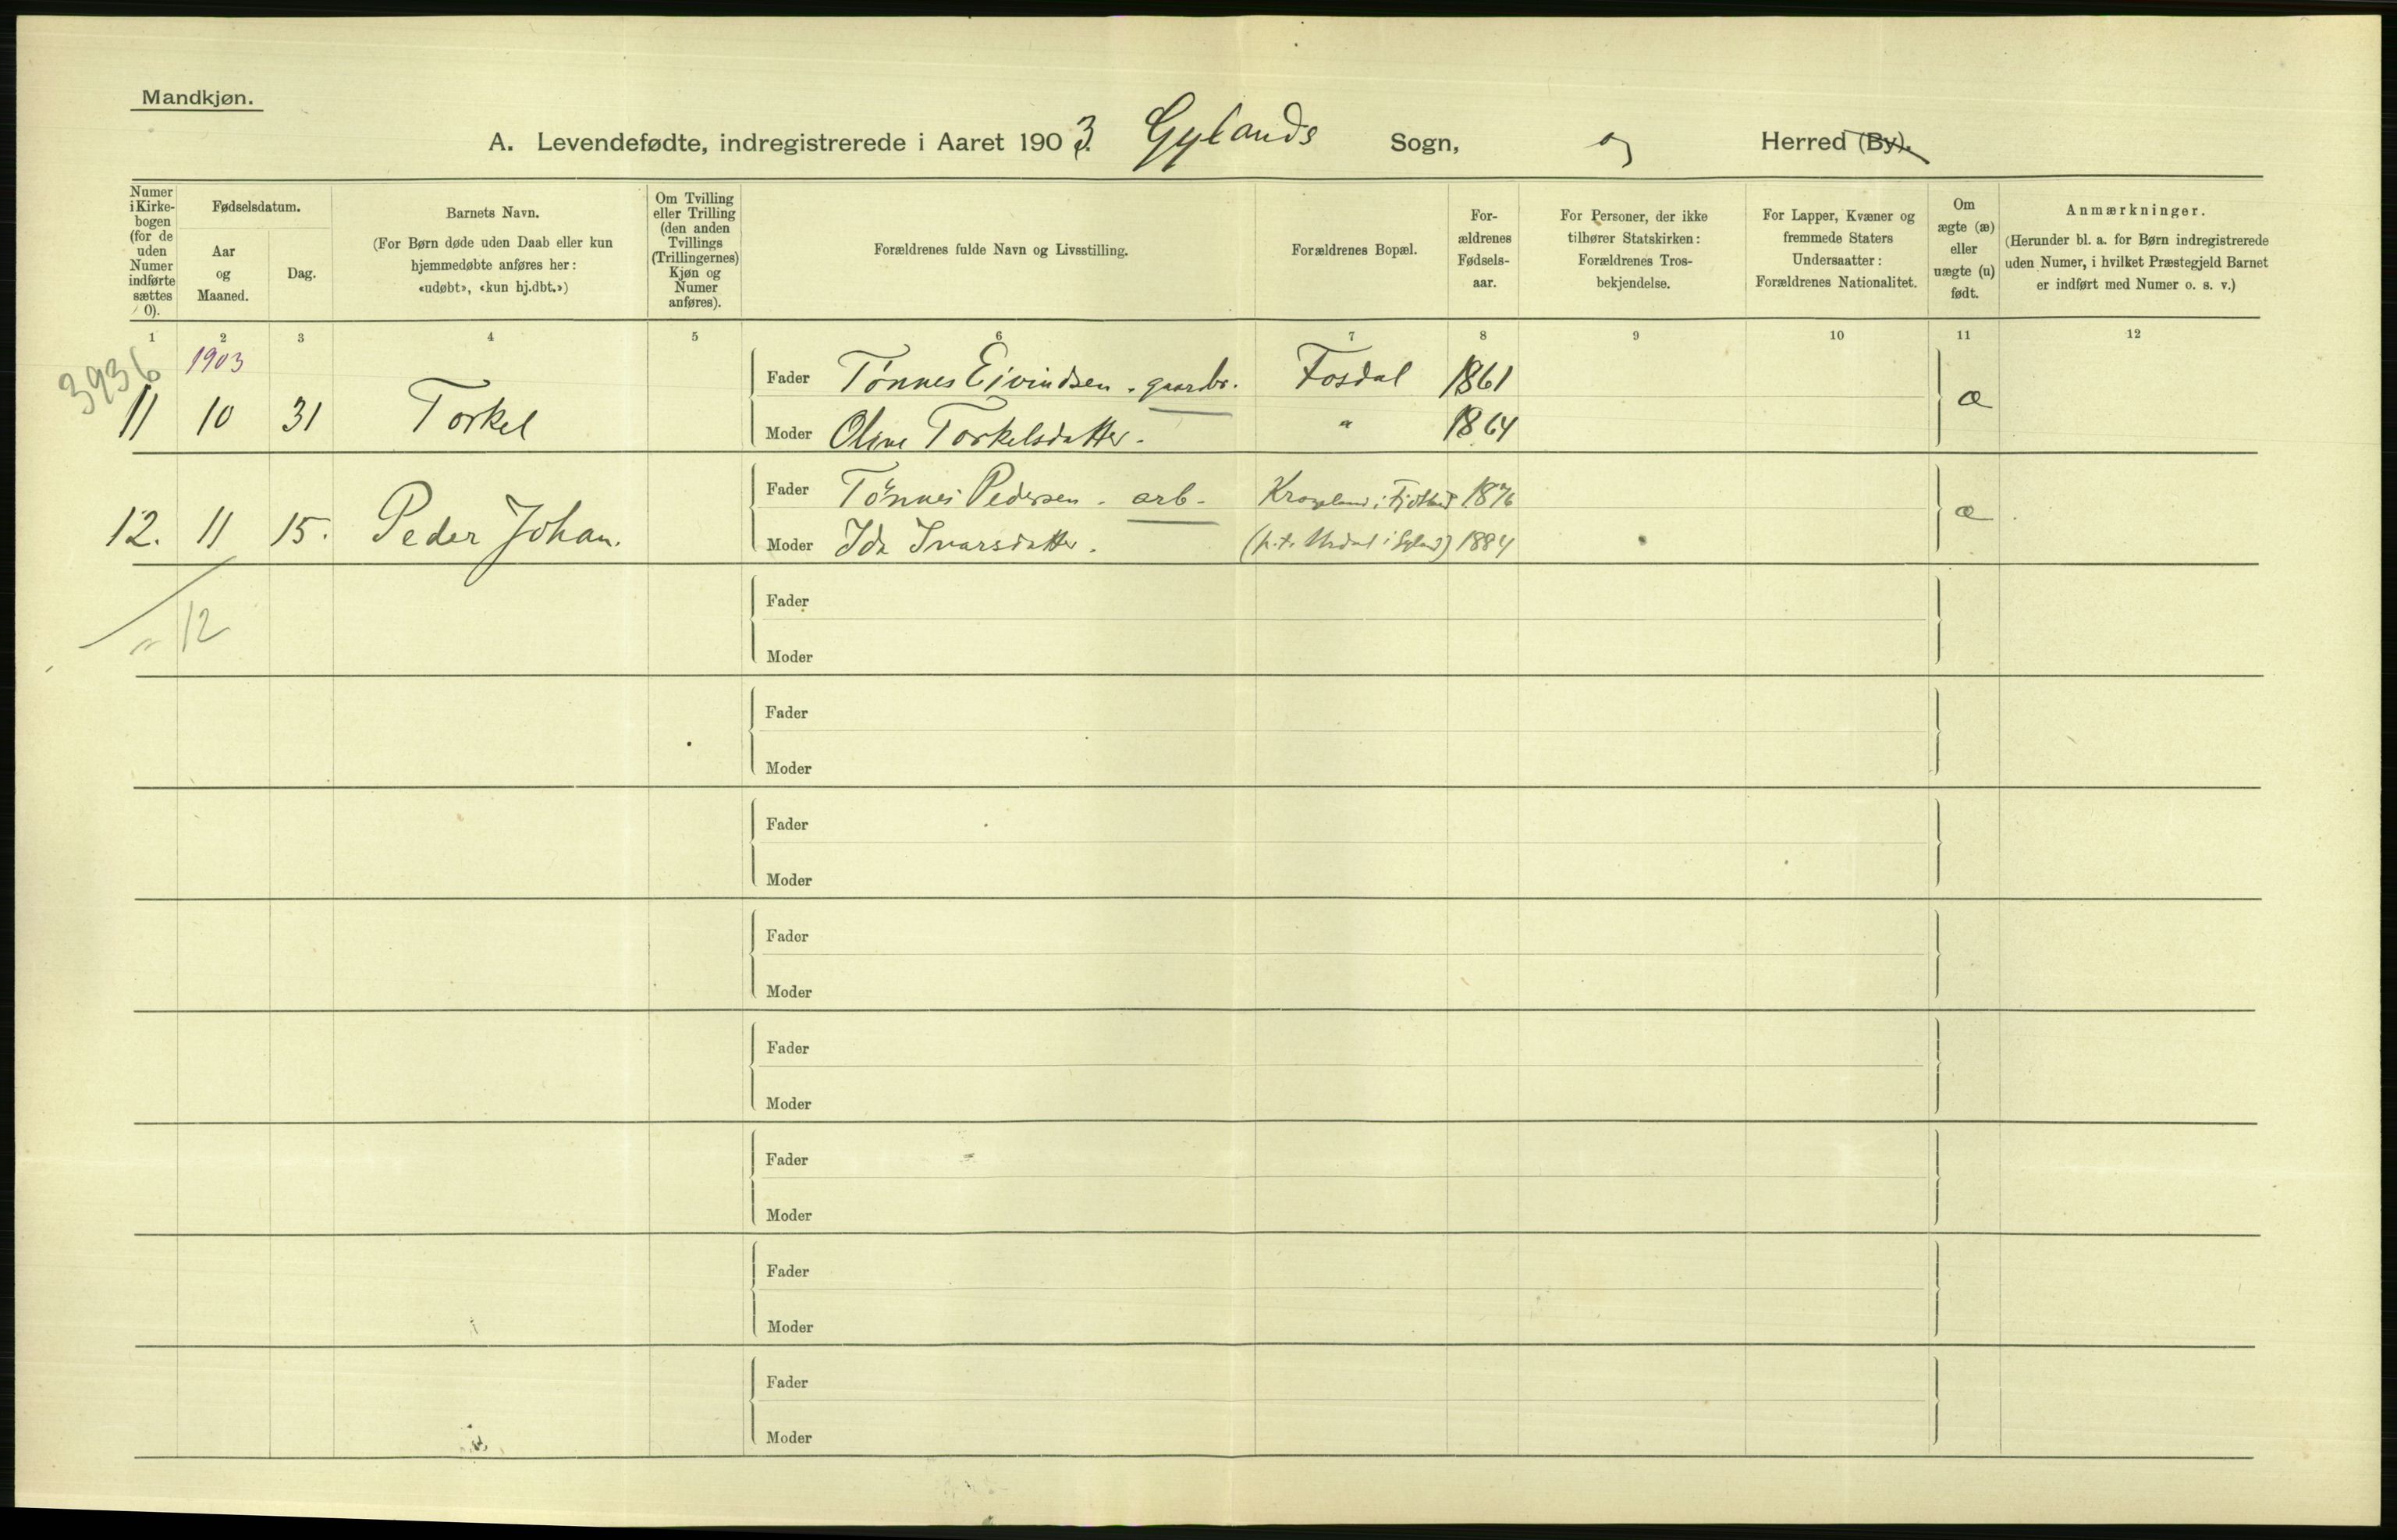 Mandkjøn.
A. Levendefødte, indregistrerede i Aaret 1903. Gylands Sogn, og Herred (By).
Numer i Kirkebogen (for de uden Numer indførte sættes 0).
Fødselsdatum.
Aar og Maaned.
Dag.
Barnets Navn.
(For Børn døde uden Daab eller kun hjemmedøbte anføres her: «udøbt», «kun hj.dbt.»)
Om Tvilling eller Trilling (den anden Tvillings (Trillingernes) Kjøn og Numer anføres).
Forældrenes fulde Navn og Livsstilling.
Forældrenes Bopæl.
Forældrenes Fødselsaar.
For Personer, der ikke tilhører Statskirken: Forældrenes Trosbekjendelse.
For Lapper, Kvæner og fremmede Staters Undersaatter: Forældrenes Nationalitet.
Om ægte (æ) eller uægte (u) født.
Anmærkninger.
(Herunder bl. a. for Børn indregistrerede uden Numer, i hvilket Præstegjeld Barnet er indført med Numer o. s. v.)
1 2 3 4 5 6 7 8 9 10 11 12
3936
1903
Fader Tønnes Eivindsen. gaardbr. Fosdal 1861
11 10 31 Torkel æ
Moder Oline Torkelsdatter. " 1864
Fader Tønnes Pedersen. arb. i 1876
12. 11 15. Peder Johan. æ
Moder Ida Ivarsdatter. (p.t. i Gyland) 1884
12
Fader
Moder
Fader
Moder
Fader
Moder
Fader
Moder
Fader
Moder
Fader
Moder
Fader
Moder
Fader
Moder